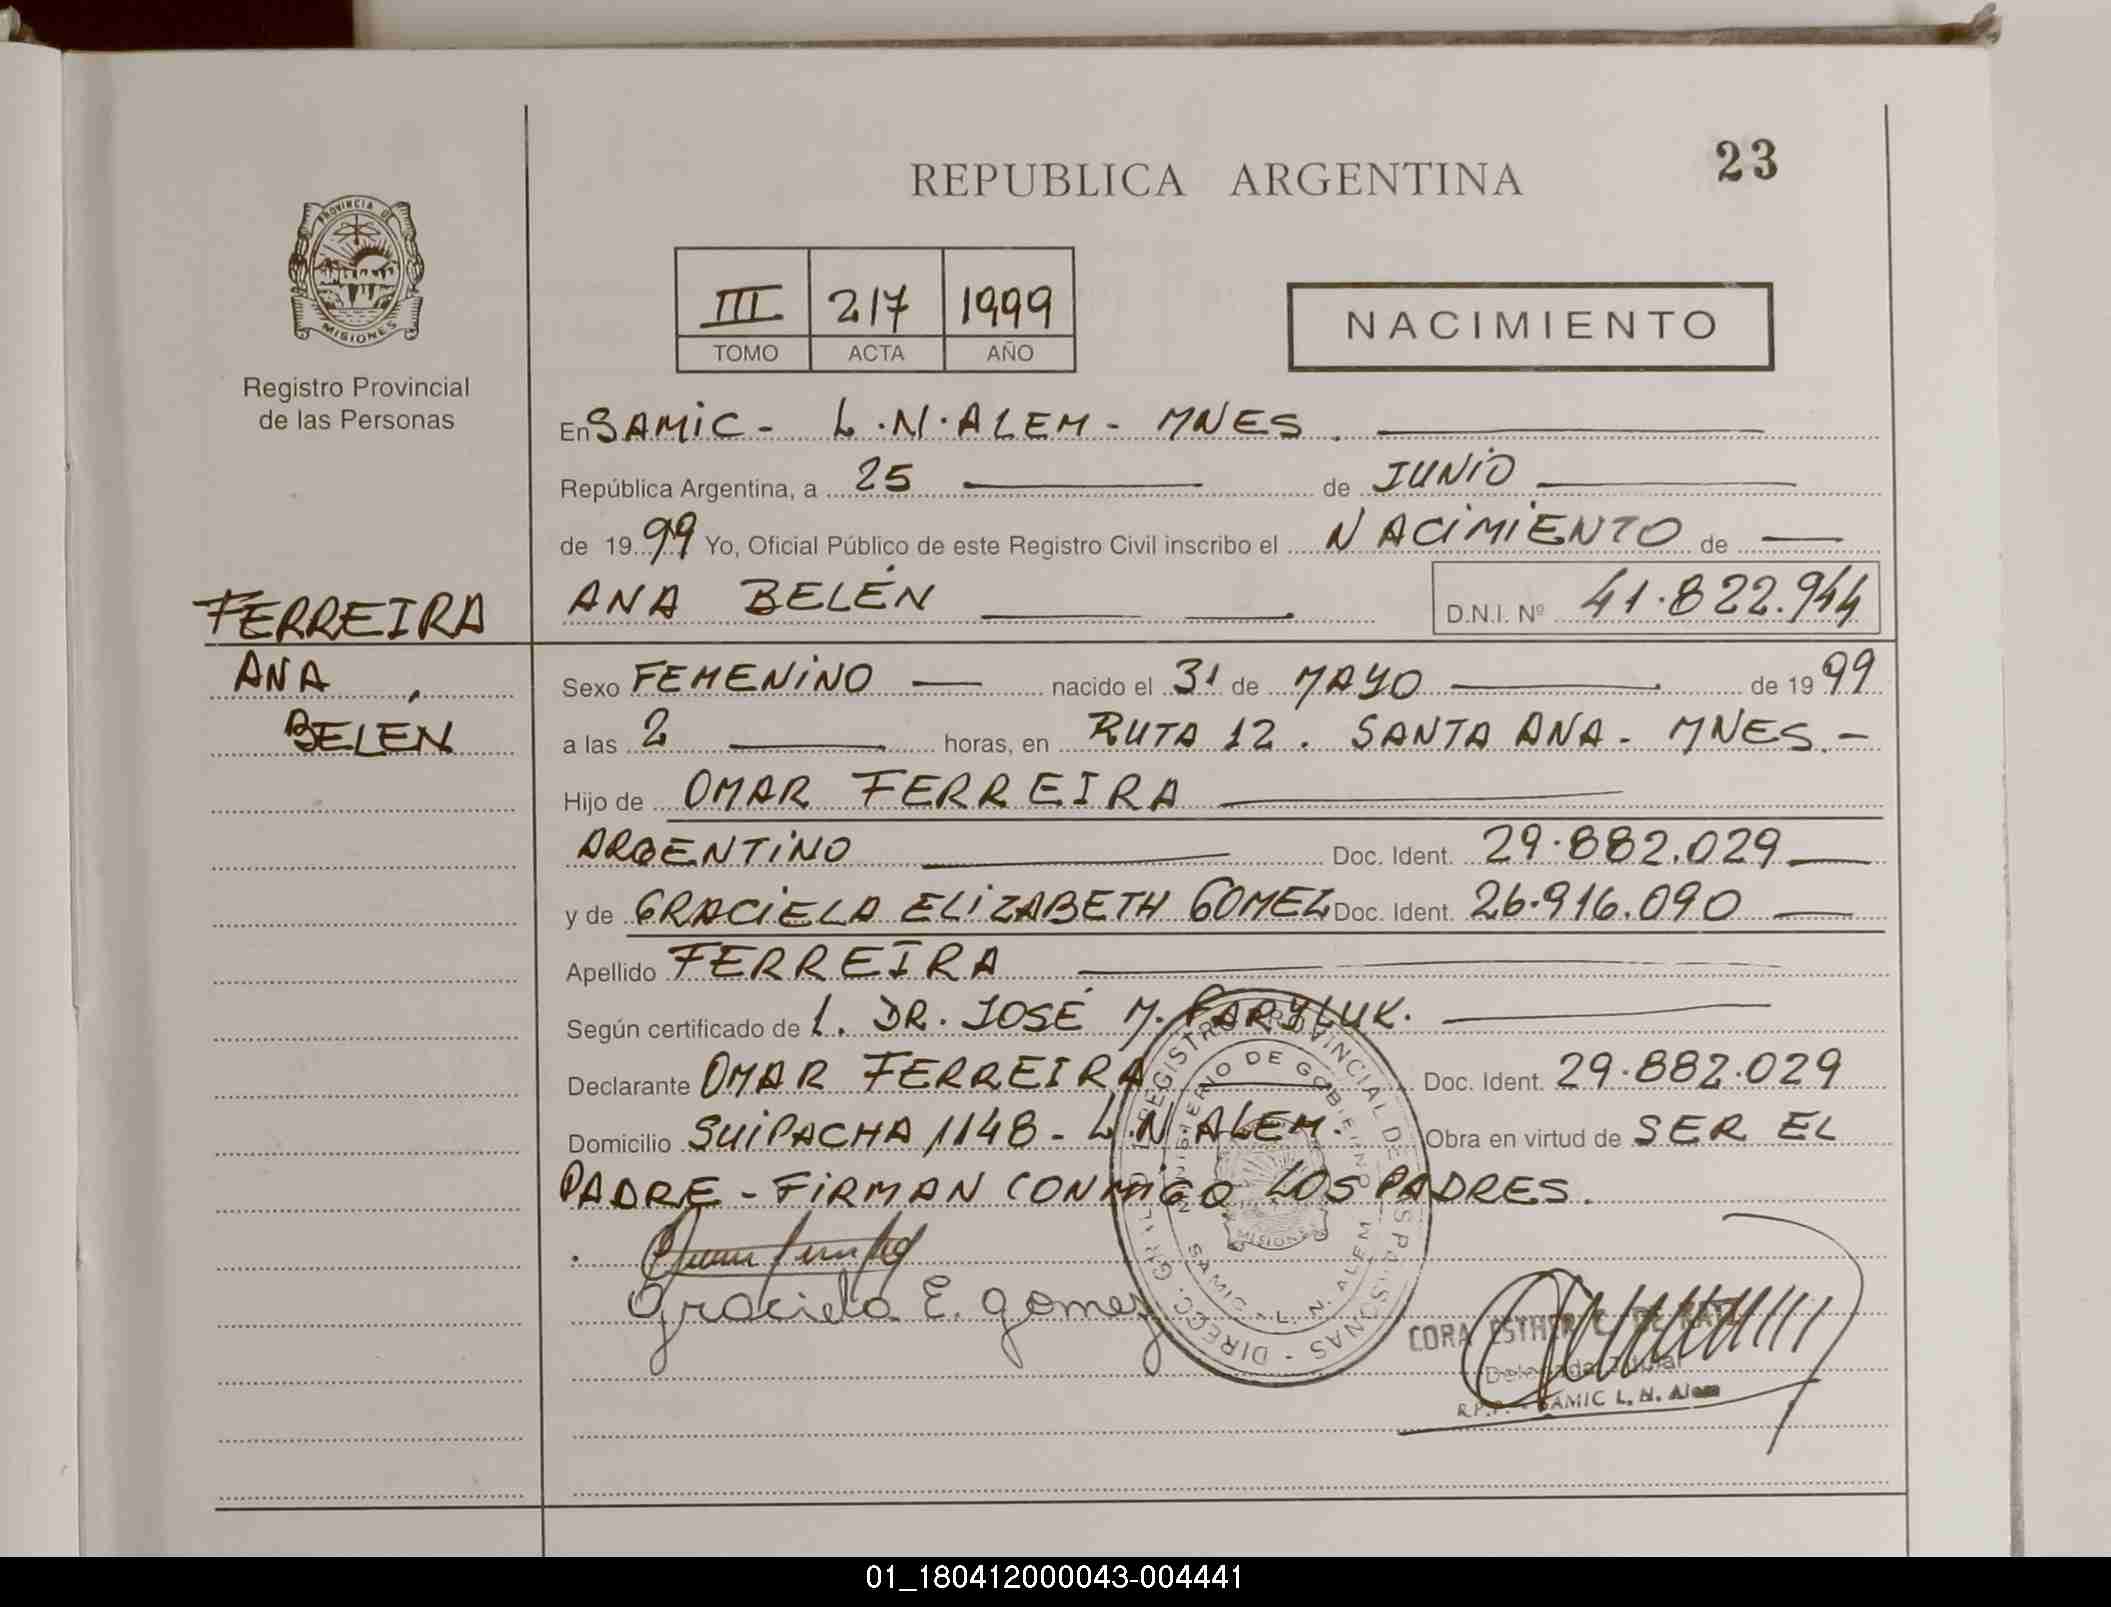 REPUBLICA ARGENTINA
23
PROVINCIA DE
MISIONES
Registro Provincial
de las Personas
III 217 1999
TOMO ACTA AÑO
NACIMIENTO
En SAMIC - L.N. ALEM - MNES.
República Argentina, a 25 de JUNIO
de 1999 Yo, Oficial Público de este Registro Civil inscribo el NACIMIENTO de
ANA BELÉN D.N.I. Nº 41.822.944
FERREIRA
ANA
BELÉN
Sexo FEMENINO nacido el 31 de MAYO de 1999
a las 2 horas, en RUTA 12. SANTA ANA - MNES.-
Hijo de OMAR FERREIRA
ARGENTINO Doc. Ident. 29.882.029
y de GRACIELA ELIZABETH GOMEZ Doc. Ident. 26.916.090
Apellido FERREIRA
Según certificado de L. DR. JOSÉ M. PARYLUK.
Declarante OMAR FERREIRA Doc. Ident. 29.882.029
Domicilio SUIPACHA 1148 - L.N. ALEM. Obra en virtud de SER EL
PADRE - FIRMAN CONMIGO LOS PADRES.
Graciela E. gomez
DIRECC. GRL. REGISTRO PROVINCIAL DE LAS PERSONAS
MINISTERIO DE GOBIERNO
MISIONES
SAMIC - L. N. ALEM
CORA ESTHER C. DE
Delegada Titular
R.P.P. - SAMIC L. N. Alem
01_180412000043-004441